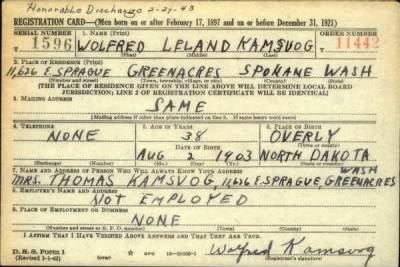 Honorable Discharge 2-27-43
REGISTRATION CARD—(Men born on or after February 17, 1897 and on or before December 31, 1921)
SERIAL NUMBER 1. NAME (Print) ORDER NUMBER
1596 WOLFRED LELAND KAMSVOG 11442
(First) (Middle) (Last)
2. PLACE OF RESIDENCE (Print)
11,626 E. SPRAGUE GREENACRES SPOKANE WASH
(Number and street) (Town, township, village, or city) (County) (State)
[THE PLACE OF RESIDENCE GIVEN ON THE LINE ABOVE WILL DETERMINE LOCAL BOARD
JURISDICTION; LINE 2 OF REGISTRATION CERTIFICATE WILL BE IDENTICAL]
3. MAILING ADDRESS
SAME
[Mailing address if other than place indicated on line 2. If same insert word same]
4. TELEPHONE 5. AGE IN YEARS 6. PLACE OF BIRTH
NONE 38 OVERLY
DATE OF BIRTH (Town or county)
AUG 2 1903 NORTH DAKOTA
(Exchange) (Number) (Mo.) (Day) (Yr.) (State or country)
7. NAME AND ADDRESS OF PERSON WHO WILL ALWAYS KNOW YOUR ADDRESS WASH
MRS. THOMAS KAMSVOG, 11,626 E. SPRAGUE, GREENACRES
8. EMPLOYER'S NAME AND ADDRESS
NOT EMPLOYED
9. PLACE OF EMPLOYMENT OR BUSINESS
NONE
(Number and street or R. F. D. number) (Town) (County) (State)
I AFFIRM THAT I HAVE VERIFIED ABOVE ANSWERS AND THAT THEY ARE TRUE.
D. S. S. Form 1 Wolfred Kamsvog
(Revised 1-1-42) (over) (Registrant's signature)